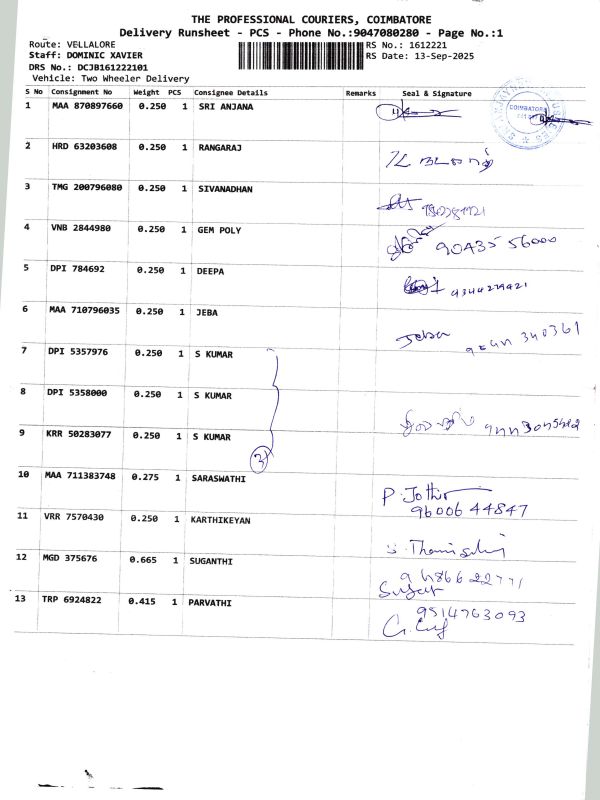 THE PROFESSIONAL COURIERS, COIMBATORE
Delivery Runsheet - PCS - Phone No.:9047080280 - Page No.:1
Route: VELLALORE RS No.: 1612221
Staff: DOMINIC XAVIER RS Date: 13-Sep-2025
DRS No.: DCJB161222101
Vehicle: Two Wheeler Delivery
S No Consignment No Weight PCS Consignee Details Remarks Seal & Signature
1 MAA 870897660 0.250 1 SRI ANJANA
COIMBATORE
2 HRD 63203608 0.250 1 RANGARAJ
3 TMG 200796080 0.250 1 SIVANADHAN
4 VNB 2844980 0.250 1 GEM POLY
90435 56000
5 DPI 784692 0.250 1 DEEPA
6 MAA 710796035 0.250 1 JEBA
Jeba
7 DPI 5357976 0.250 1 S KUMAR
8 DPI 5358000 0.250 1 S KUMAR
9 KRR 50283077 0.250 1 S KUMAR
3
10 MAA 711383748 0.275 1 SARASWATHI
P. Jothi
9600644847
11 VRR 7570430 0.250 1 KARTHIKEYAN
12 MGD 375676 0.665 1 SUGANTHI
13 TRP 6924822 0.415 1 PARVATHI
9514763093